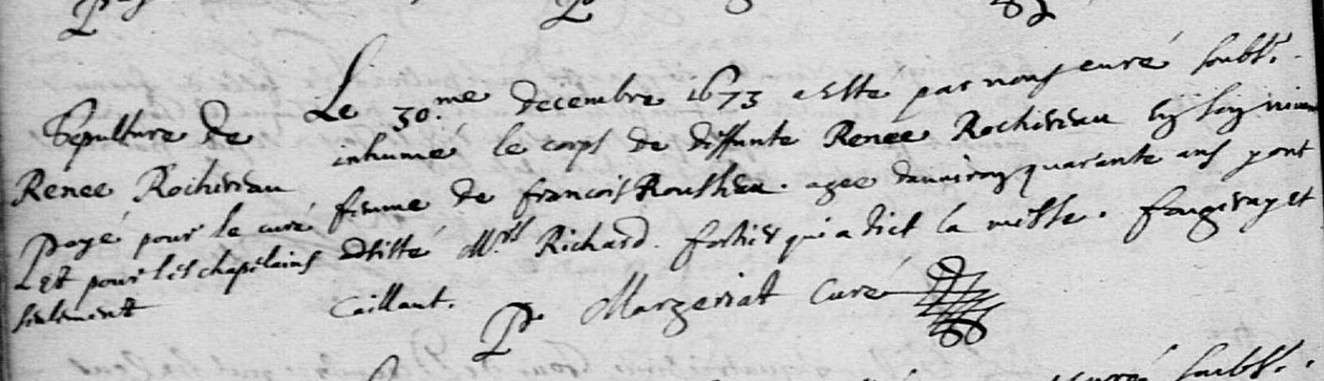 Sepulture de
Renee Rochereau
payé pour le curé
Let pour les chapelains
seulement
Le 30.me decembre 1673 a esté par nous curé soubs.
inhumé le corps de deffunte Renee Rochereau
femme de francois Rousseau. agee d'anviron quarante ans y ont
assisté Mrs Richard. fortier qui a dict la messe. fougeray et
Caillaut.
P. Margeriat Curé